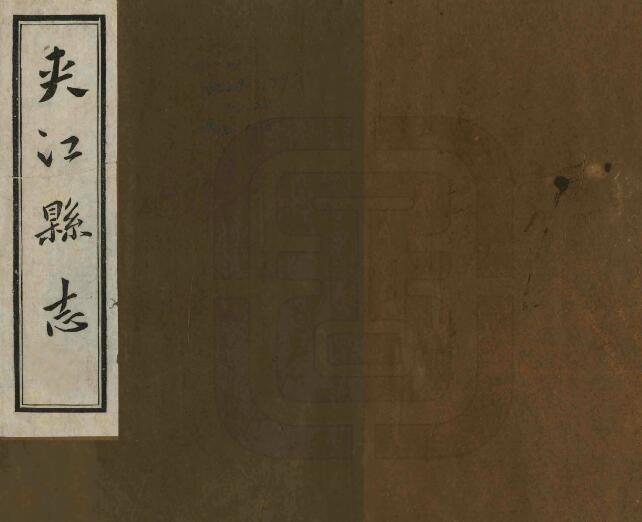 夾江縣志